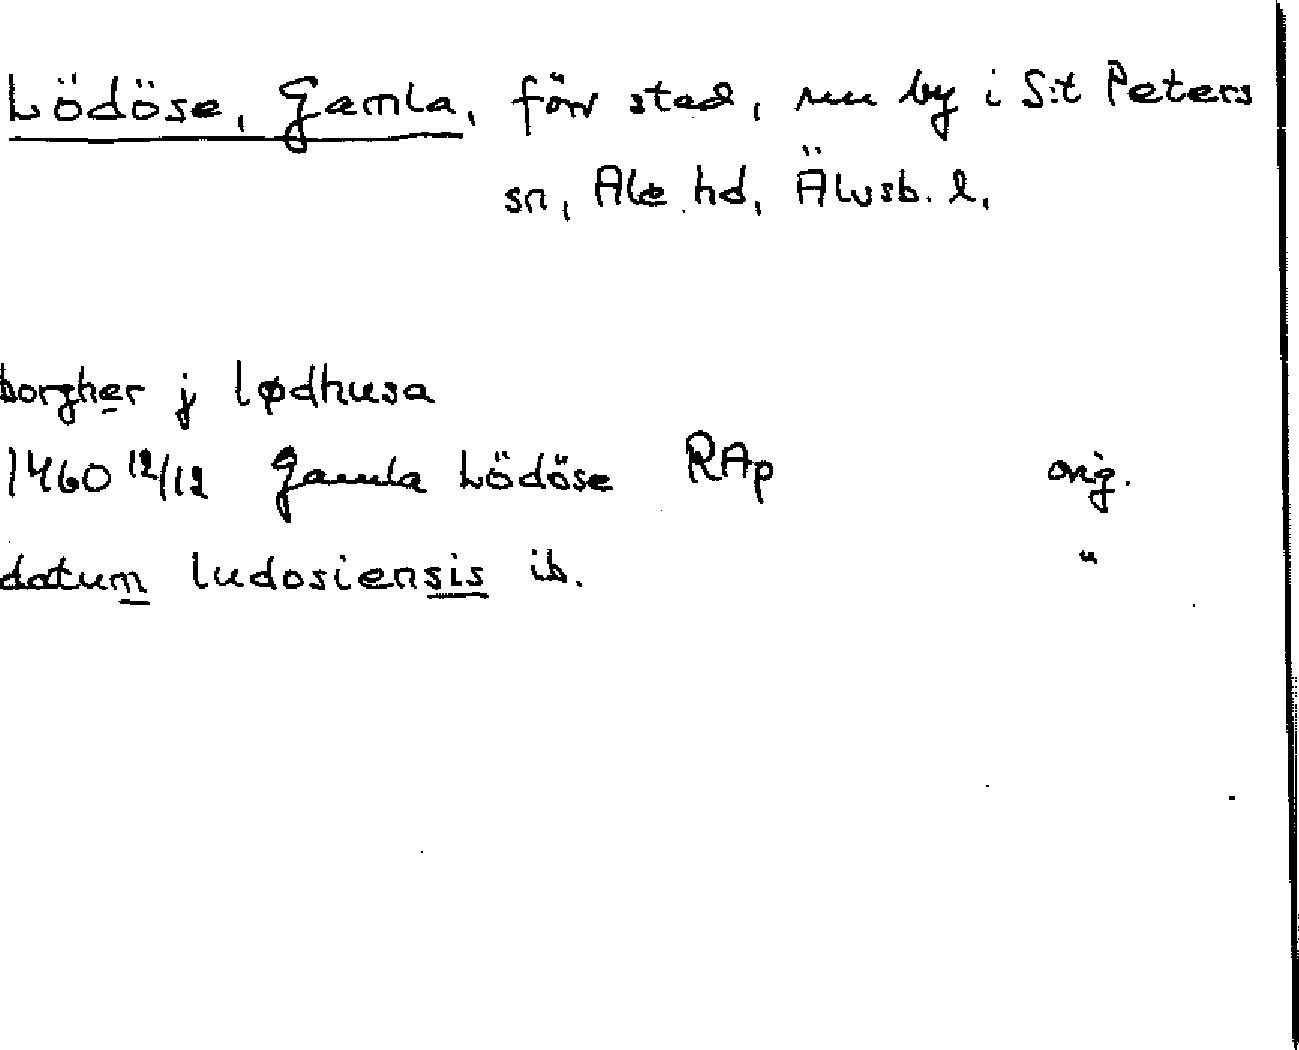 Lödöse, Gamla, förr stad, nu by i S:t Peters
sn, Ale hd, Älvsb. l.
borgher j lødhusa
1460 12/12 Gamla Lödöse RAp orig.
datum ludosiensis ib. "